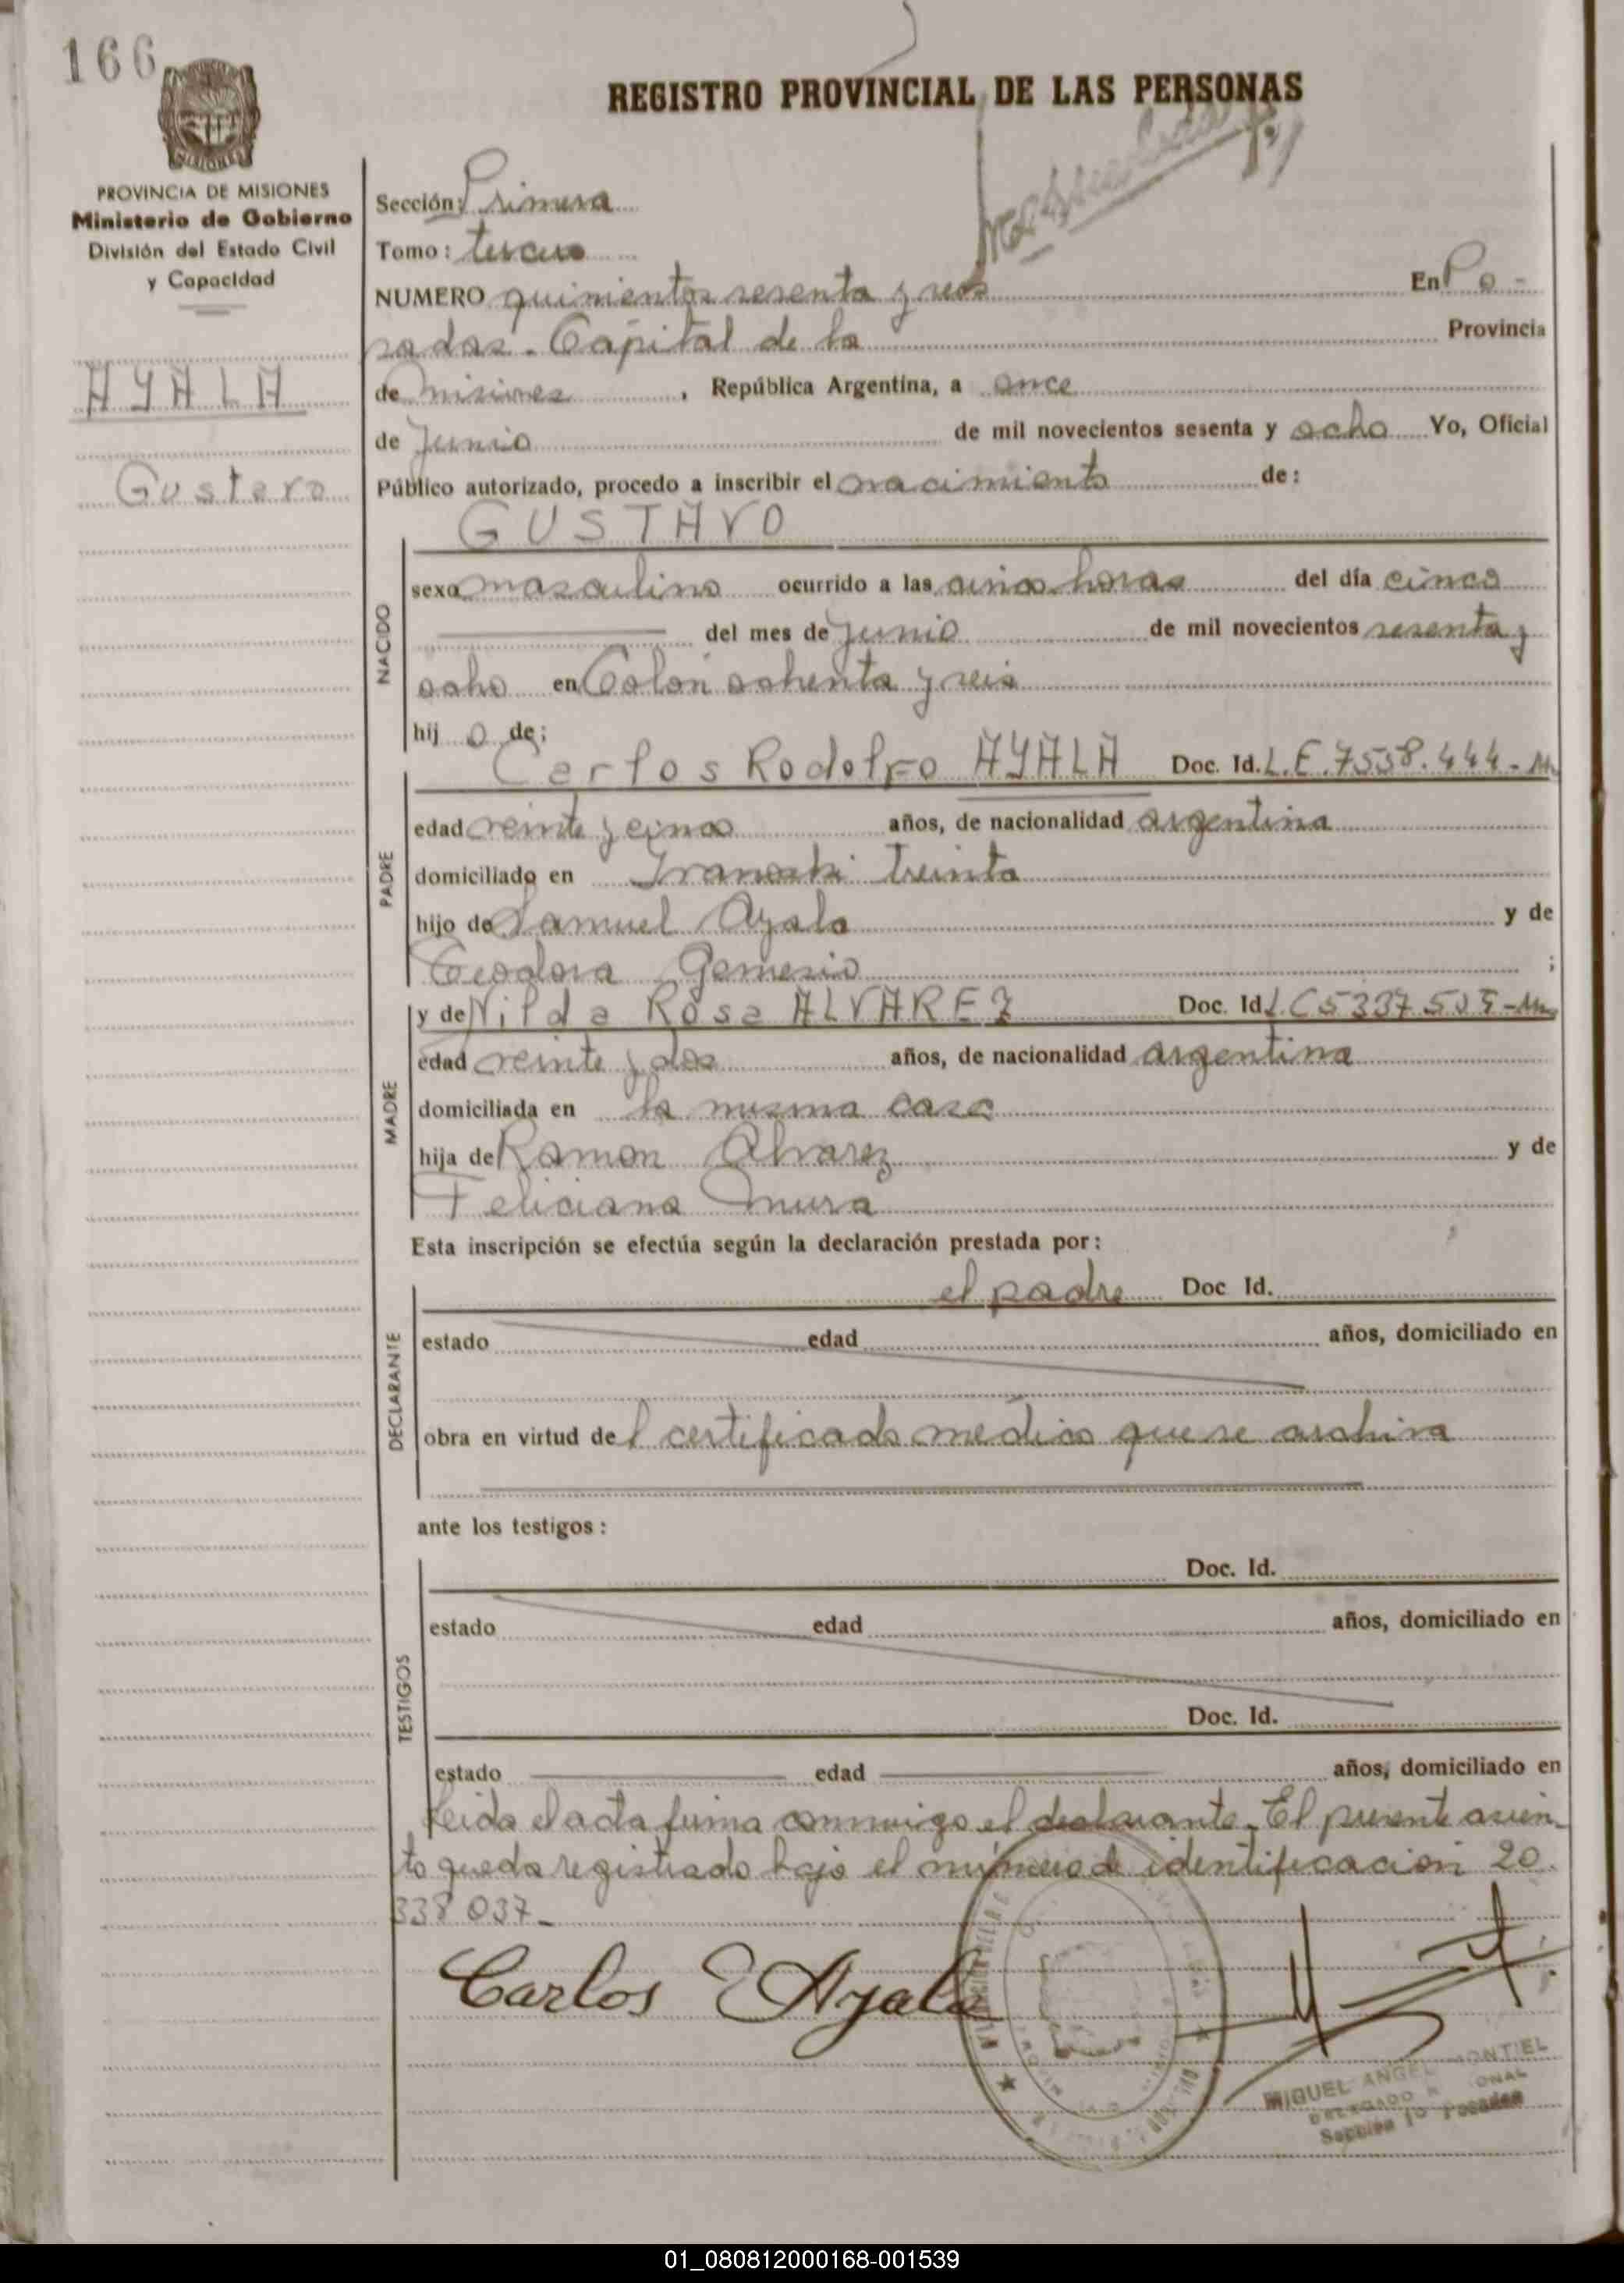 166
REGISTRO PROVINCIAL DE LAS PERSONAS
PROVINCIA DE MISIONES
Ministerio de Gobierno
División del Estado Civil
y Capacidad
AYALA
Gustavo
Sección: Primera
Tomo: tercero
NUMERO quinientos sesenta y seis En Po-
sadas. Capital de la Provincia
de Misiones, República Argentina, a once
de Junio de mil novecientos sesenta y ocho Yo, Oficial
Público autorizado, procedo a inscribir el nacimiento de:
GUSTAVO
NACIDO
sexo masculino ocurrido a las cinco horas del día cinco
del mes de Junio de mil novecientos sesenta y
ocho en Colón ochenta y seis
hijo de:
PADRE
Carlos Rodolfo AYALA Doc. Id. L.E. 7558.444-M
edad veinte y cinco años, de nacionalidad argentina
domiciliado en treinta
hijo de Samuel Ayala y de
Teodora ;
MADRE
y de Nilda Rosa ALVAREZ Doc. Id L C 5337505-M
edad veinte y dos años, de nacionalidad argentina
domiciliada en la misma casa
hija de Ramon Alvarez y de
Feliciana Mura
Esta inscripción se efectúa según la declaración prestada por:
DECLARANTE
el padre Doc Id.
estado edad años, domiciliado en
obra en virtud del certificado médico que se archiva
ante los testigos:
TESTIGOS
Doc. Id.
estado edad años, domiciliado en
Doc. Id.
estado edad años, domiciliado en
Leida el acta firma conmigo el declarante. El presente asien-
to queda registrado bajo el número de identificación 20.
338 037-
Carlos Ayala
MIGUEL ANGEL MONTIEL
DELEGADO
Sección 1º Posadas
01_080812000168-001539